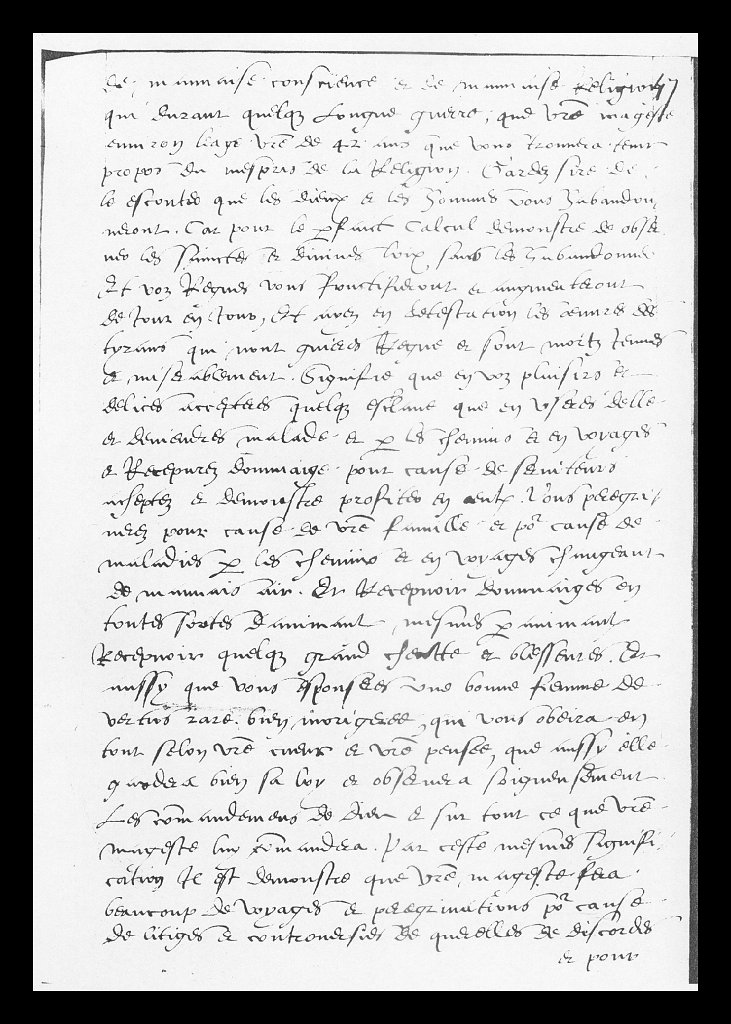 de mauvaise conscience et de mauvaise Religion 47
qui durant quelq longue guerre, que vre mageste
environ leage vre de 42 ans que vous trouvera tenir
propos du mespris de la Religion. Gardez sire de
le escouter que les dieux et les hommes vous habandon
neront. Car pour le pfaict calcul demonstre de obser
ver les sainctes et divines loix sans les habandonner
Et voz Regnes vous fructifieront et augmenteront
de Jour en Jour, Et ayez en detestation les oeuvres des
tyrans qui nont guieres Regne et sont mortz Jeunes
et miserablement. Signifie que en voz plaisirs et
delices accepteres quelq esclave que en useres delle
et deviendres malade et p les chemins et en voyages
et Recepvrez dommaige pour cause de serviteurs
acheptez et demonstre profiter en eulx. Vous peregri
nerez pour cause de vre famille et po cause de
maladies p les chemins et en voyages changeant
de mauvais air. Et Recepvoir dommaiges en
toutes sortes danimant mesmes p animant
Recepvoir quelq grand cheutte et blessures. Et
aussy que vous esponseres une bonne femme de
vertus rare bien morigeree, qui vous obeira en
tout selon vre cueur et vre pensee, que aussy elle
gardera bien sa loy et observera soigneusement
Les comandemens de Dieu et sur tout ce que vre
mageste luy comandera. Par ceste mesmes signifi
cation Il est demonstre que vre mageste fera
beaucoup de voyages et peregrinations po cause
de litiges et controversies de querelles de discordes
et pour